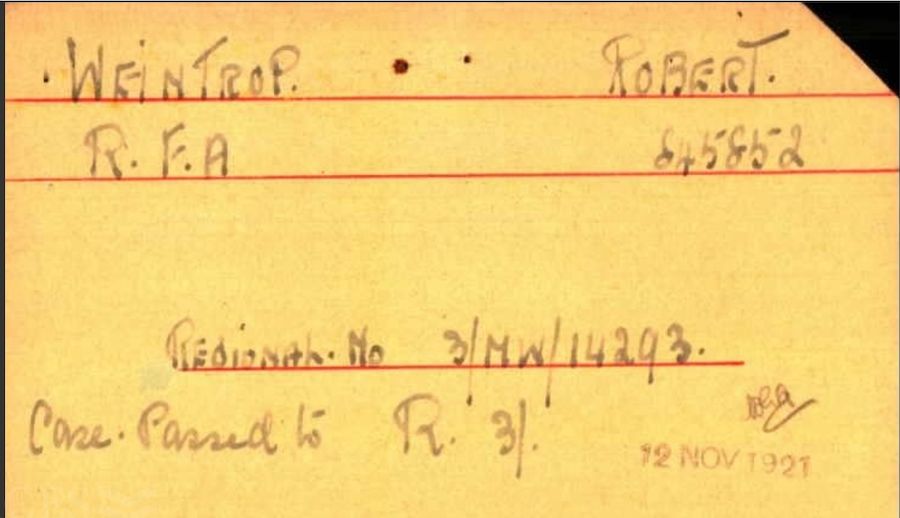 WEINTROP. ROBERT.
R. F. A 845852
REGIONAL. No 3/MW/14293.
Case. Passed to R. 3/.
12 NOV 1921